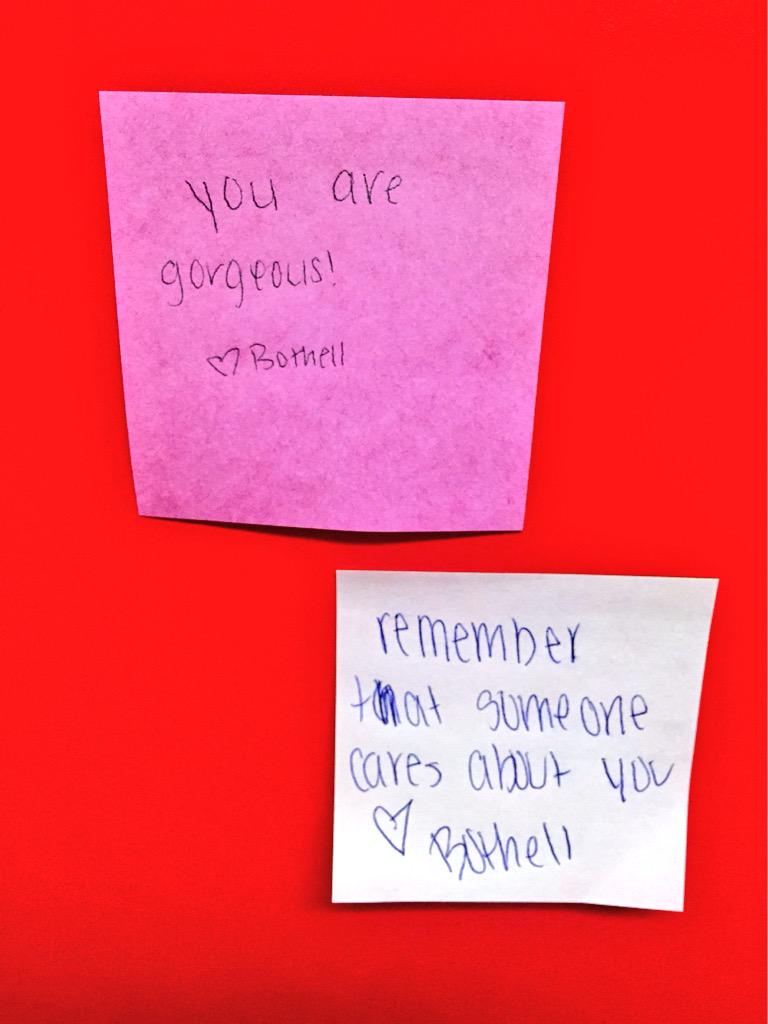 you are
gorgeous!
♡ Bothell
remember
that someone
cares about you
♡ Bothell